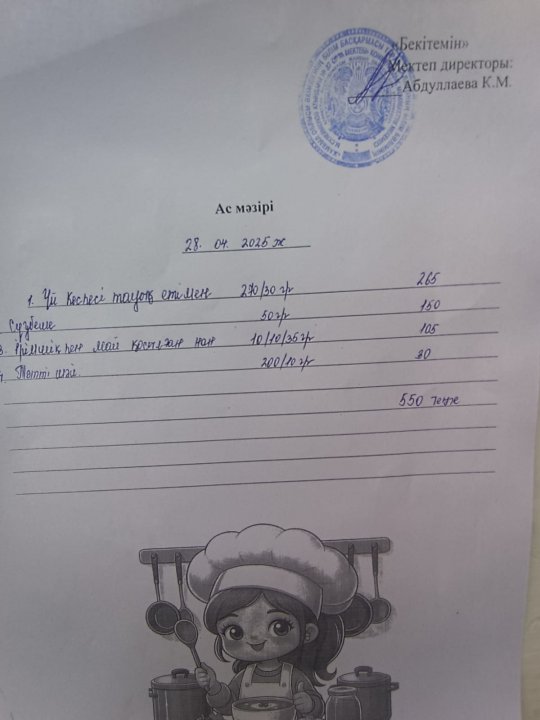 «Бекітемін»
Мектеп директоры:
Абдуллаева К.М.
Ас мәзірі
28. 04. 2025 ж
1. Үй кеспесі тауық етімен 270/30 гр 265
Сүзбеше 50 гр 150
3. Ірімшік пен май қосылған нан 10/10/35 гр 105
4. Тәтті шәй. 200/10 гр 30
550 теңге